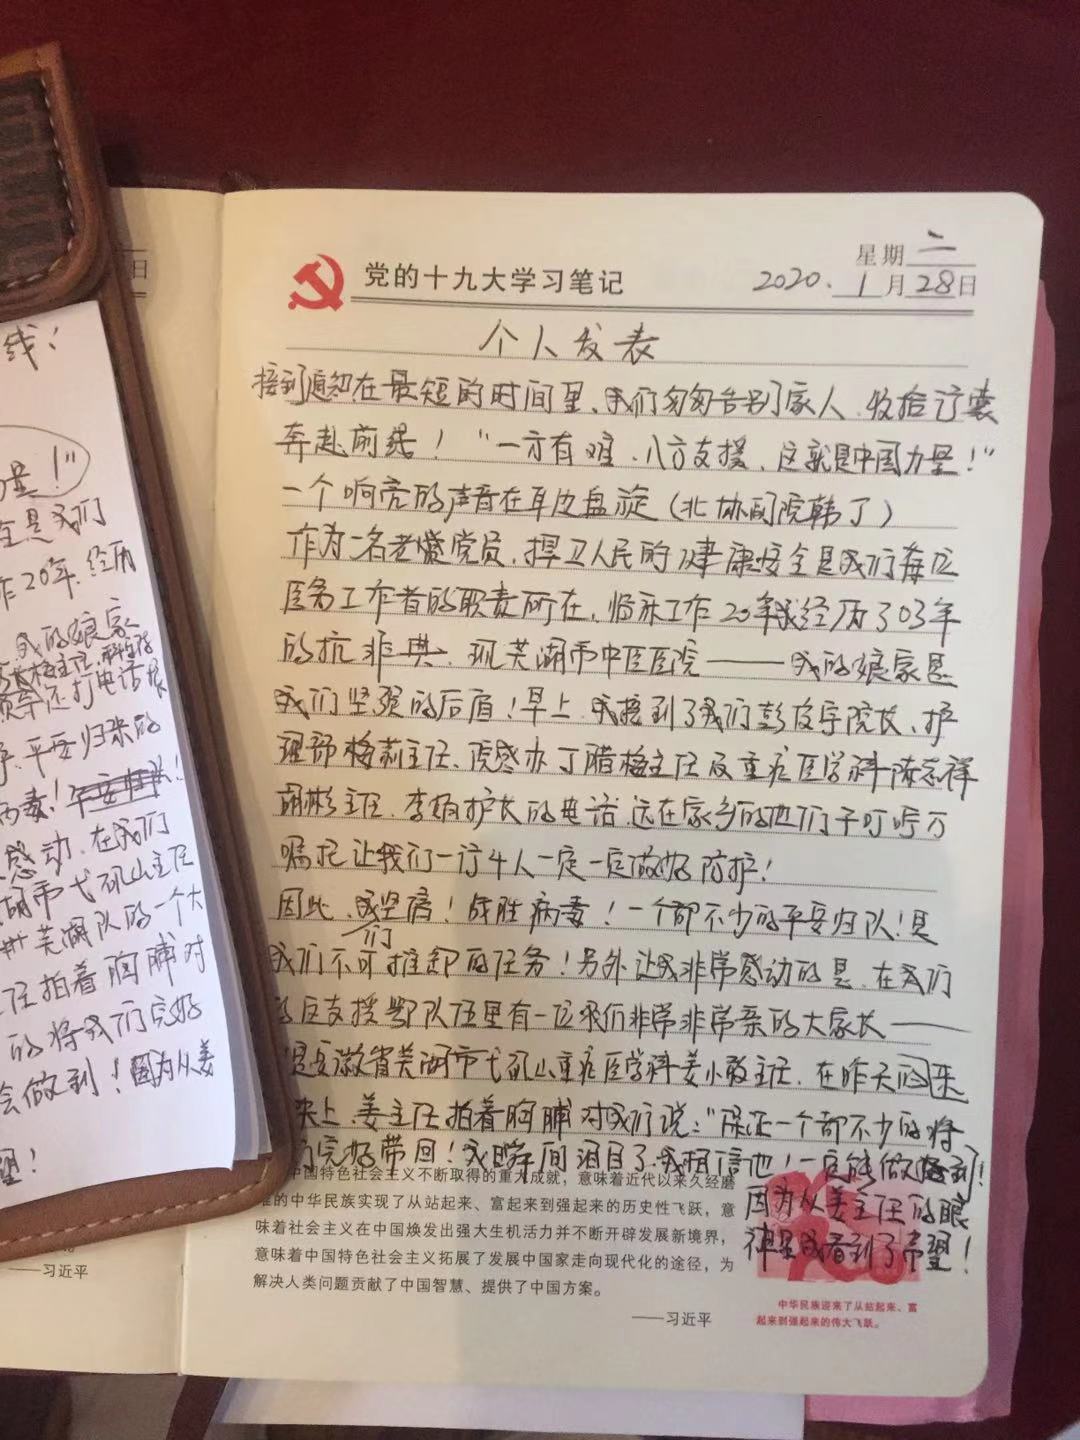 线！
量！"
全是我们
作20年.经历
我的娘家
领导还打电话
平安归来的
病毒！
感动.在我们
湖市弋矶山主任
芜湖队的一个大
任拍着胸脯对
的将我们完好
会做到！因为从姜
望！
——习近平
日
党的十九大学习笔记
星期二
2020.1月28日
个人发表
接到通知在最短的时间里、我们匆匆告别家人.收拾行囊
奔赴前线！"一方有难.八方支援、这就是中国力量！"
一个响亮的声音在耳边盘旋(北协副院韩丁)
作为一名老党员、捍卫人民的健康安全是我们每位
医务工作者的职责所在、临床工作20年我经历了03年
的抗非典.现芜湖市中医医院——我的娘家是
我们坚强的后盾！早上.我接到了我们彭院长、护
理部梅莉主任、院感办丁腊梅主任及重症医学科陈志祥
胡彬主任.李护长的电话.远在家乡的他们千叮咛万
嘱托让我们一行4人一定一定做好防护！
因此、我们坚信！战胜病毒！一个都不少的平安归队！是
我们不可推卸的任务！另外让我非常感动的是、在我们
支援部队伍里有一位我们非常非常亲的大家长——
是安徽省芜湖市弋矶山重症医学科姜小敢主任、在昨天
上、姜主任拍着胸脯对我们说："保证一个都不少的将
完好带回！我瞬间泪目了.我相信他！一定能做到！
因为从姜主任的眼
神里我看到了希望！
中国特色社会主义不断取得的重大成就，意味着近代以来久经磨
难的中华民族实现了从站起来、富起来到强起来的历史性飞跃，意
味着社会主义在中国焕发出强大生机活力并不断开辟发展新境界，
意味着中国特色社会主义拓展了发展中国家走向现代化的途径，为
解决人类问题贡献了中国智慧、提供了中国方案。
——习近平
中华民族迎来了从站起来、富
起来到强起来的伟大飞跃。